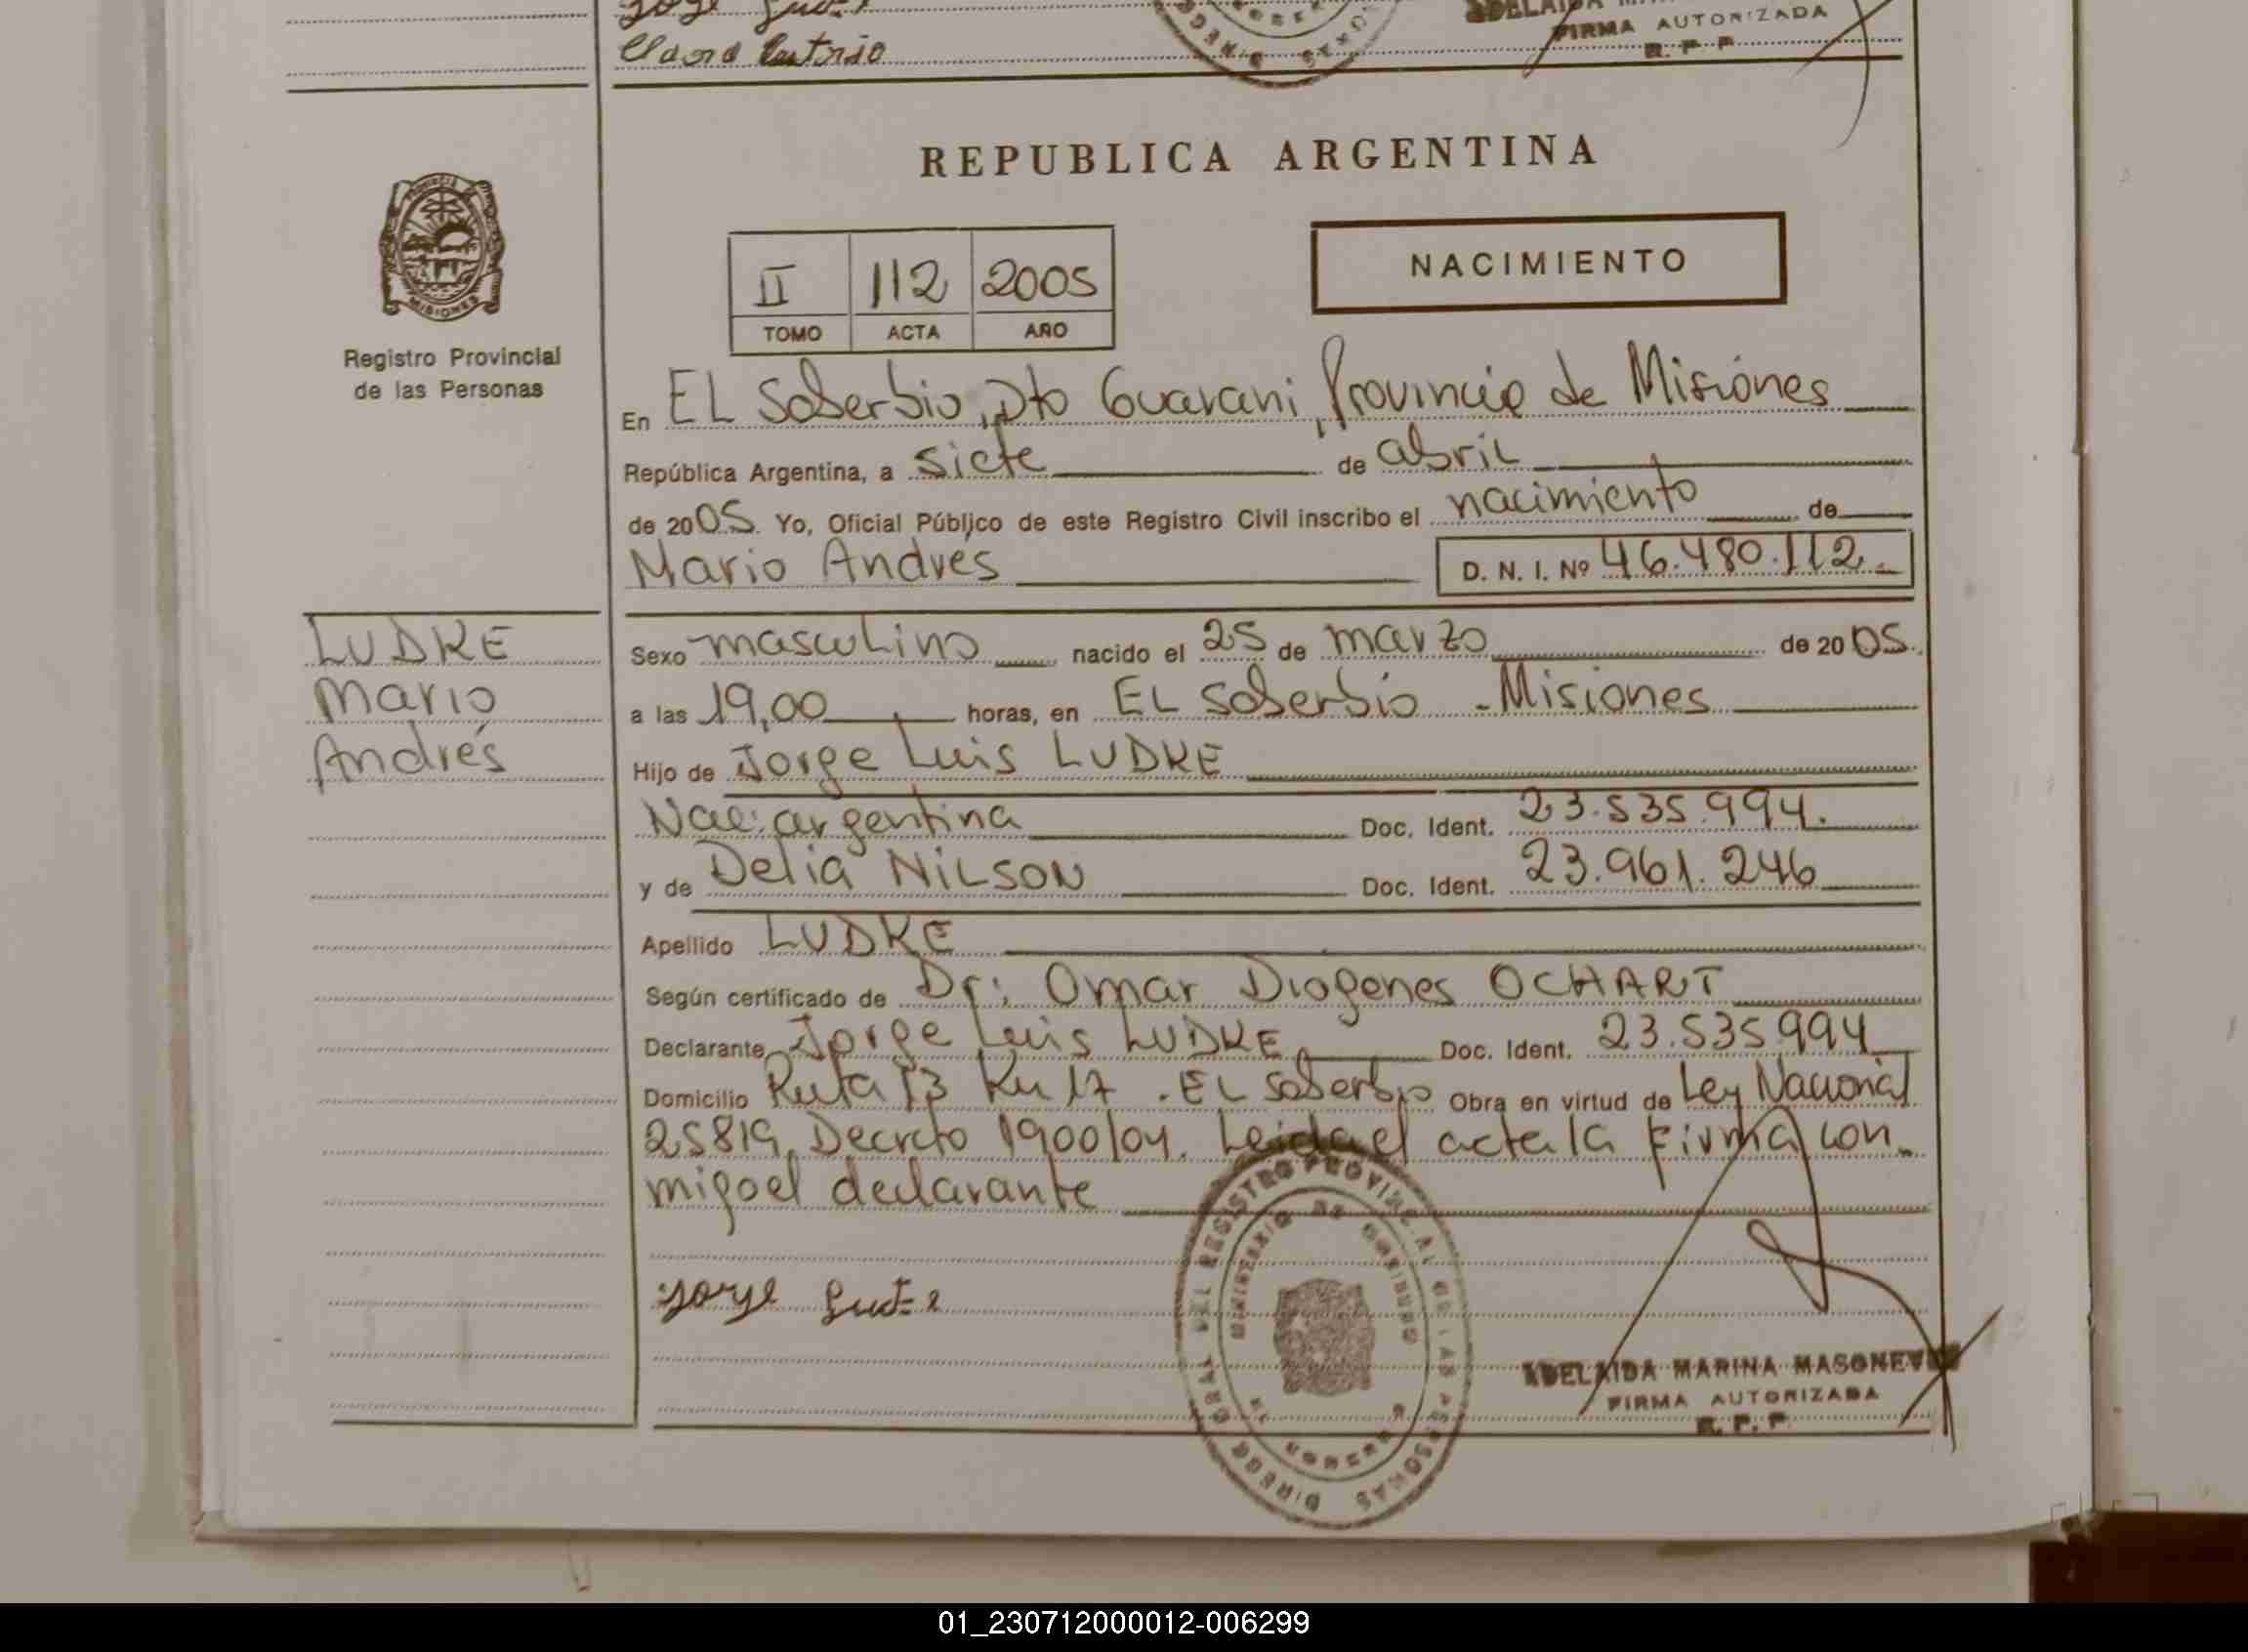 Clara
FIRMA AUTORIZADA
R. P. P.
REPUBLICA ARGENTINA
MISIONES
Registro Provincial
de las Personas
II 112 2005
TOMO ACTA AÑO
NACIMIENTO
En EL Soberbio, Dto Guarani, Provincia de Misiones
República Argentina, a siete de abril
de 2005. Yo, Oficial Público de este Registro Civil inscribo el nacimiento de
Mario Andrés D. N. I. Nº 46.480.112.
LUDKE
Mario
Andrés
Sexo masculino nacido el 25 de marzo de 2005.
a las 19,00 horas, en EL Soberbio - Misiones
Hijo de Jorge Luis LUDKE
Nac: argentina Doc. Ident. 23.535.994.
y de Delia NILSON Doc. Ident. 23.961.246
Apellido LUDKE
Según certificado de Dr: Omar Diogenes OCHART
Declarante Jorge Luis LUDKE Doc. Ident. 23.535994
Domicilio Ruta 13 Km 17 . EL Soberbio Obra en virtud de Ley Nacional
25819, Decreto 1900/04. Leida el acta la firma con
migo el declarante
Jorge
DIRECC GRAL DEL REGISTRO PROVINCIAL DE LAS PERSONAS
MINISTERIO DE GOBIERNO
ADELAIDA MARINA
FIRMA AUTORIZADA
R. P. P.
01_230712000012-006299